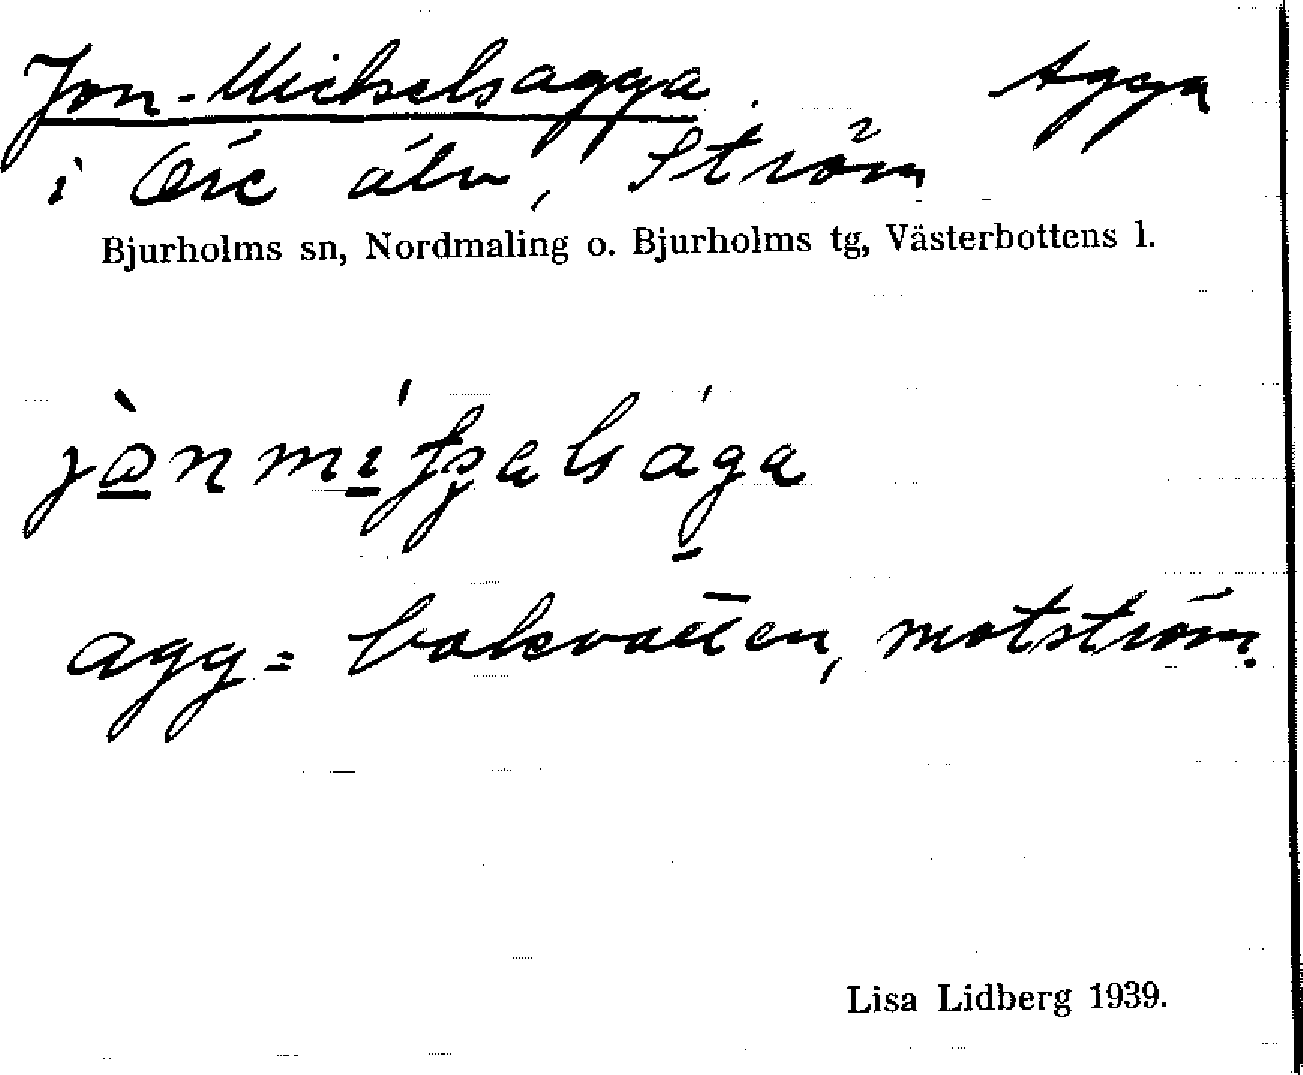 Jon-Mickelsagga. Agga
i Öre älv, Ström
Bjurholms sn, Nordmaling o. Bjurholms tg, Västerbottens l.
agg = bakvatten, motström.
Lisa Lidberg 1939.